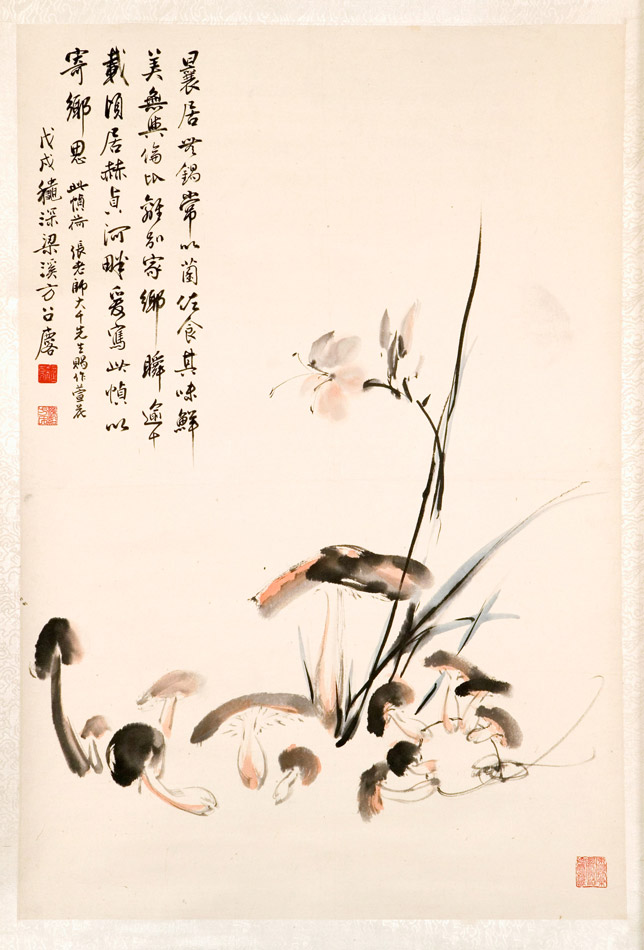 曩居無錫常以菌佐食其味鮮
美無與倫比離別家鄉瞬逾十
載頃居赫貞河畔爰寫此幀以
寄鄉思 此幀荷 張老師大千先生賜作萱花
戊戌穐深梁溪方召麐